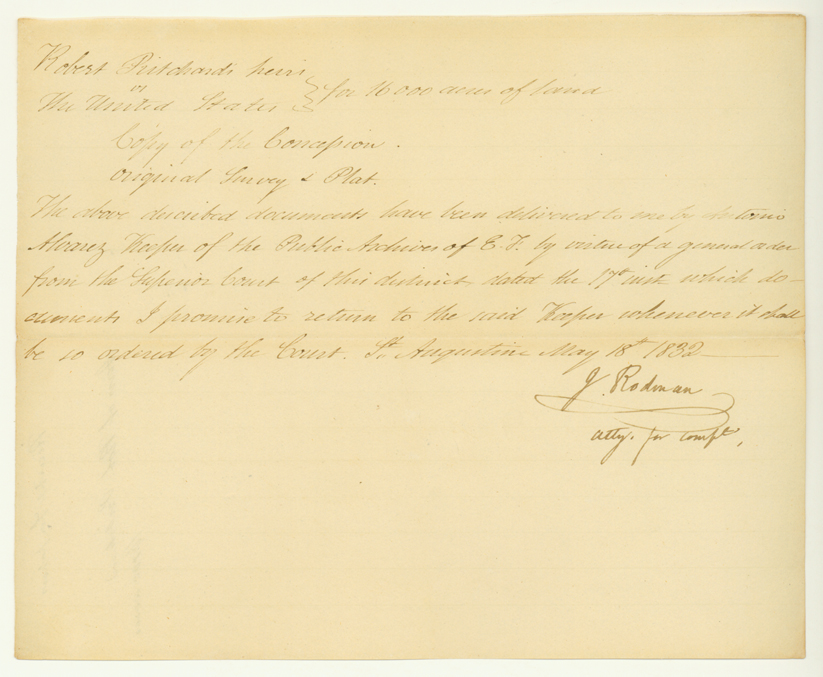 Robert Pritchard's heirs
vs
The United States } for 16000 acres of land
Copy of the Concession.
Original Survey & Plat.
The above described documents have been delivered to me by Antonio
Alvarez Keeper of the Public Archives of E. F. by virtue of a general order
from the Superior Court of this district dated the 17th inst which do-
cuments I promise to return to the said Keeper whenever it shall
be so ordered by the Court. St. Augustine May 18th 1832
J. Rodman
atty. for compt,